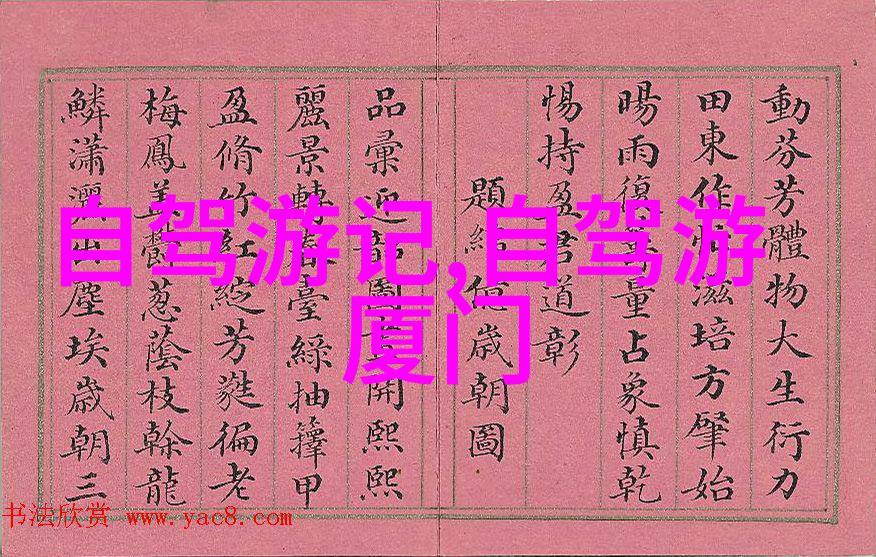 動芬芳體物大生衍力
田東作
滋培方肇始
暘雨復
量占象慎乾
惕持盈君道彰
題
歲朝圖
品彙迎
開熙熙
麗景轉
臺綠抽籜甲
盈脩竹紅綻芳蕤徧老
梅鳳
蔥蔭枝榦龍
鱗瀟灑出塵埃歲朝三
自驾游记,自驾游
厦门
书法欣赏 www.yac8.com